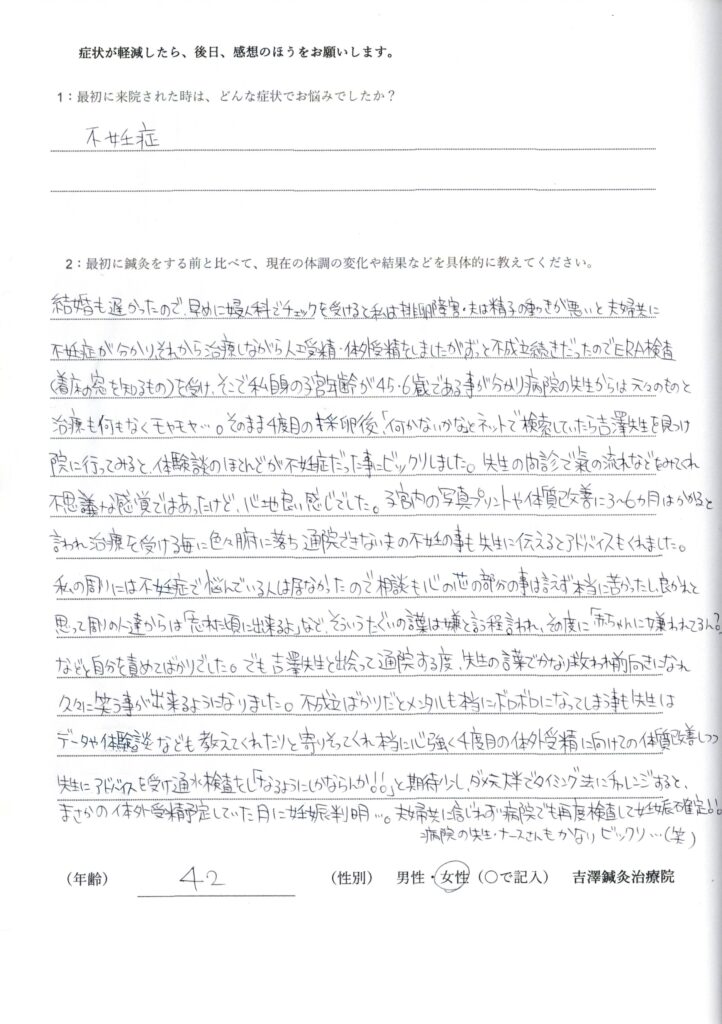 症状が軽減したら、後日、感想のほうをお願いします。
1：最初に来院された時は、どんな症状でお悩みでしたか？
不妊症
2：最初に鍼灸をする前と比べて、現在の体調の変化や結果などを具体的に教えてください。
結婚も遅かったので、早めに婦人科でチェックを受けると私は排卵障害・夫は精子の動きが悪いと夫婦共に
不妊症が分かり、それから治療しながら人工受精・体外受精をしましたがずっと不成立続きだったのでERA検査
(着床の窓を知るもの)を受け、そこで私自身の子宮年齢が45・6歳である事が分かり病院の先生からは元々のものと
治療も何もなくモヤモヤ…。そのまま4度目の採卵後、「何かないかな」とネットで検索していたら吉澤先生を見つけ
院に行ってみると、体験談のほとんどが不妊症だった事にビックリしました。先生の問診で氣の流れなどをみてくれ
不思議な感覚ではあったけど、心地良い感じでした。子宮内の写真プリントや体質改善に3〜6カ月はかかると
言われ治療を受ける毎に色々腑に落ち通院できない夫の不妊の事も先生に伝えるとアドバイスもくれました。
私の周りには不妊症で悩んでいる人は居なかったので相談も心の芯の部分の事は言えず本当に苦かったし、良かれと
思って周りの人達からは「忘れた頃に出来るよ」など、そういうたぐいの言葉は嫌と言う程言われ、その度に「赤ちゃんに嫌われてるん?」
などと自分を責めてばかりでした。でも吉澤先生と出会って通院する度、先生の言葉でかなり救われ前向きになれ
久々に笑う事が出来るようになりました。不成立ばかりだとメンタルも本当にボロボロになってしまう事も先生は
データや体験談なども教えてくれたりと寄りそってくれ本当に心強く4度目の体外受精に向けての体質改善しつつ
先生にアドバイスを受け通水検査をし「なるようにしかならんか!!」と期待少し、ダメ元大半でタイミング法にチャレンジすると、
まさかの体外受精予定していた月に妊娠判明…。夫婦共に信じれず病院でも再度検査して妊娠確定!!
病院の先生・ナースさんもかなりビックリ…(笑)
（年齢） 42 （性別） 男性・女性（〇で記入） 吉澤鍼灸治療院